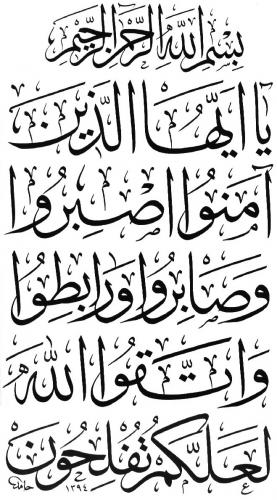 بِسْمِ اللّٰهِ الرَّحْمٰنِ الرَّحِيمِ
يَا اَيُّهَا الَّذِينَ
آمَنُوا اصْبِرُوا
وَصَابِرُوا وَرَابِطُوا
وَاتَّقُوا اللّٰهَ
لَعَلَّكُمْ تُفْلِحُونَ
حامد ١٣٩٤